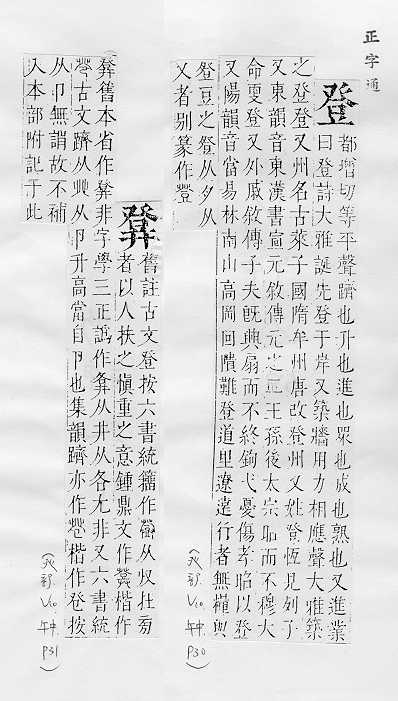 正字通
登
都增切等平聲躋也升也進也眾也成也熟也又進業
曰登詩大雅誕先登于岸又築牆用力相應聲大雅築
之登登又州名古萊子國隋牟州唐改登州又姓登恆見列子
又東韻音東漢書宣元敘傳元之二王孫後太宗昭而不穆大
命更登又外戚敘傳子夫既興扇而不終鉤弋憂傷孝昭以登
又陽韻音當易林南山高岡回隤難登道里遼遠行者無糧與
豋豆之豋从夕从
又者別篆作豋
舊註古文登按六書統籀作𤼷从収杜
者以人扶之慎重之意鍾鼎文作楷作
舊本省作非字學三正譌作从井从各尤非又六書統
古文躋从艸从卪升高當自卪也集韻躋亦作楷作登按
从卪無謂故不補
入本部附記于此
(癶部 V10 午中 P30)
(癶部 V10 午中 P31)